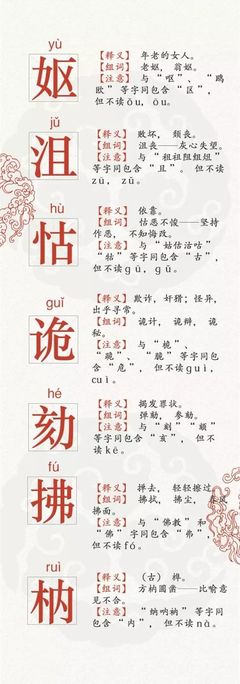 yù
妪
【释义】 年老的女人。
【组词】 老妪，翁妪。
【注意】 与“呕”、“鸥
欧”等字同包含“区”，
但不读ǒu，ōu。
jǔ
沮
【释义】 败坏，颓丧。
【组词】 沮丧——灰心失望。
【注意】 与“祖租阻组俎”
等字同包含“且”。 但不读
zū， zǔ。
hù
怙
【释义】 依靠。
【组词】 怙恶不悛——坚持
作恶， 不知悔改。
【注意】 与“姑估沽咕”
“牯”等字同包含“古”，
但不读gū，gǔ。
guǐ
诡
【释义】 欺诈，奸猾；怪异，
出乎寻常。
【组词】 诡计，诡辩， 诡
秘。
【注意】 与“桅”、
“跪”、 “脆”等字同包
含“危”，但不读guì，
cuì。
hé
劾
【释义】 揭发罪状。
【组词】 弹劾，参劾。
【注意】 与“刻”“颏”
等字同包含“亥”， 但不
读ké。
fú
拂
【释义】 掸去， 轻轻擦过。
【组词】 拂拭，拂尘， 春风
拂面。
【注意】 与“佛教”和
“佛”字同包含“弗”，
但不读fó。
ruì
枘
【释义】 （古） 榫。
【组词】 方枘圆凿——比喻意
见不合。
【注意】 “纳呐衲”等字同
包含“内”，但不读nà。